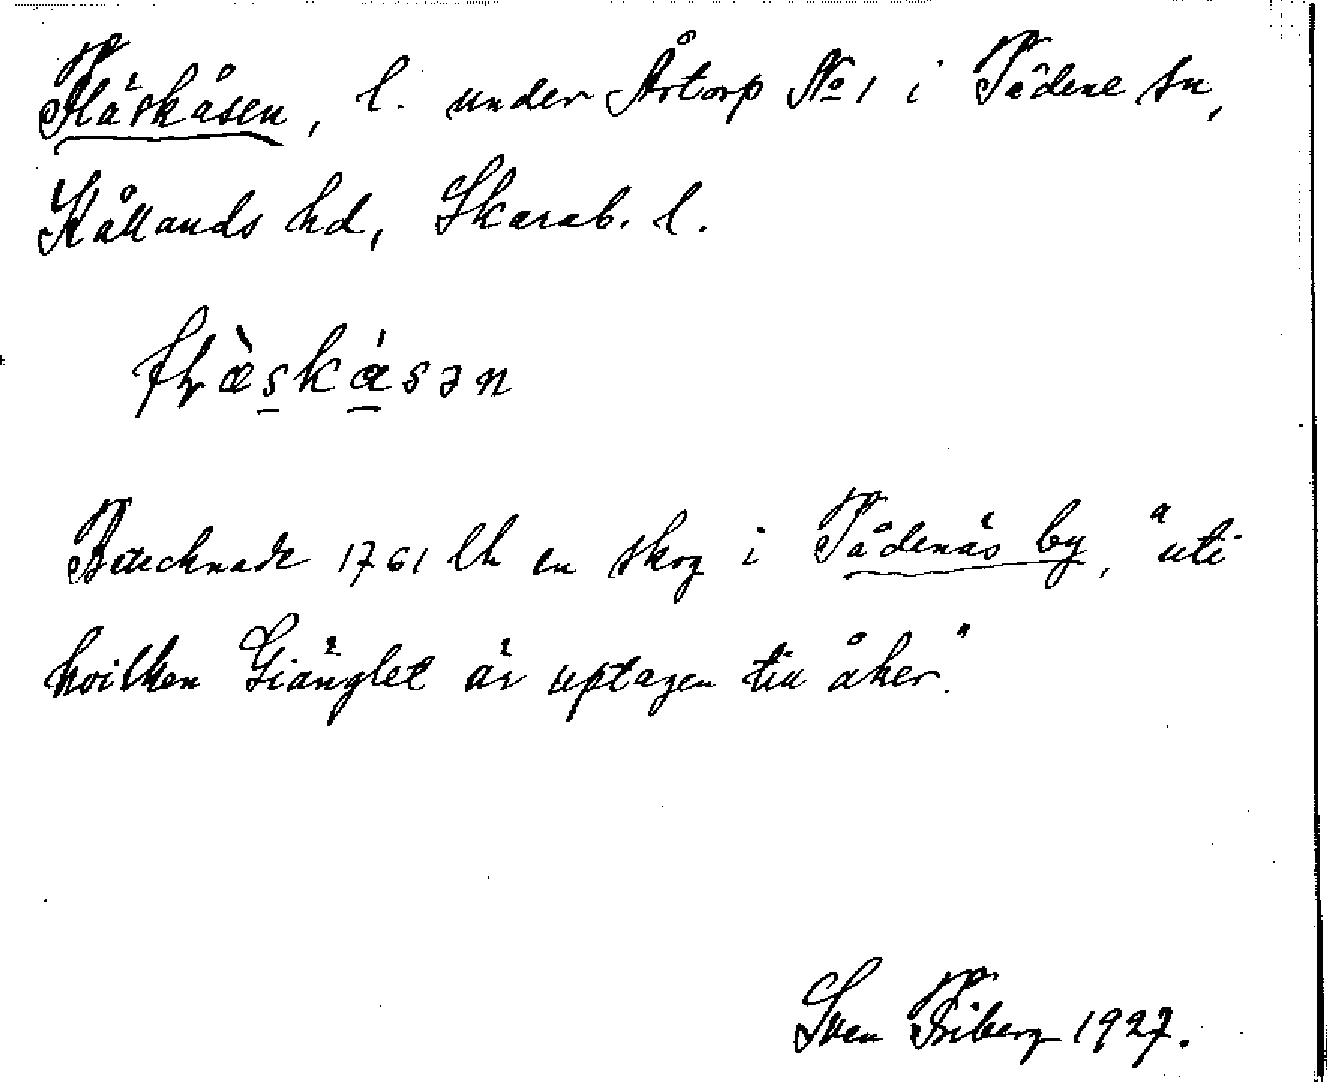 Fläskåsen, l. under Årtorp No 1 i Tådene sn,
Kållands hd, Skarab. l.
flæ̀skásən
Betecknade 1761 lh en skog i Tådenäs by, "uti
hvilken Giänglet är uptagen till åker."
Sven Friberg 1927.